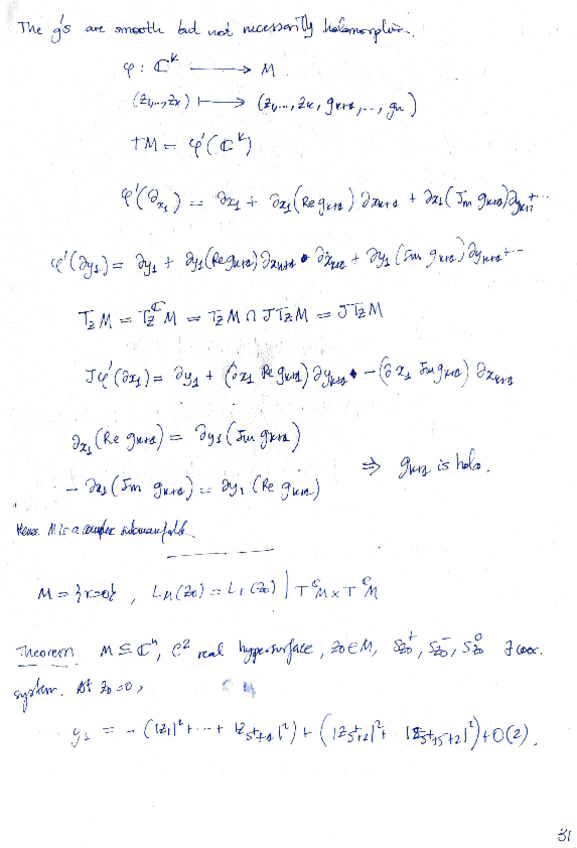 The g's are smooth but not necessarily holomorphic.
φ : ℂᵏ ⟶ M
(z₁,...,zₖ) ⟼ (z₁,...,zₖ, gₖ₊₁,..., gₙ)
TM = φ'(ℂᵏ)
φ'(∂x₁) = ∂x₁ + ∂x₁(Re gₖ₊₁) ∂xₖ₊₁ + ∂x₁(Im gₖ₊₁)∂yₖ₊₁ + ...
φ'(∂y₁) = ∂y₁ + ∂y₁(Re gₖ₊₁) ∂xₖ₊₁ + ∂y₁(Im gₖ₊₁)∂yₖ₊₁ + ...
T_z M = T_z^ℂ M = T_z M ∩ J T_z M = J T_z M
Jφ'(∂x₁) = ∂y₁ + (∂x₁ Re gₖ₊₁) ∂yₖ₊₁ - (∂x₁ Im gₖ₊₁) ∂xₖ₊₁
∂x₁(Re gₖ₊₁) = ∂y₁(Im gₖ₊₁)
⇒ gₖ₊₁ is holo.
- ∂x₁(Im gₖ₊₁) = ∂y₁(Re gₖ₊₁)
Hence M is a complex submanifold.
M = {r=0}, L_M(z₀) = L_r(z₀) | T^ℂM × T^ℂM
Theorem M ⊆ ℂⁿ, C² real hypersurface, z₀ ∈ M, S⁺z₀, S⁻z₀, S⁰z₀ ∃ coor.
system. At z₀ = 0,
y₁ = - (|z₁|² + ... +
31